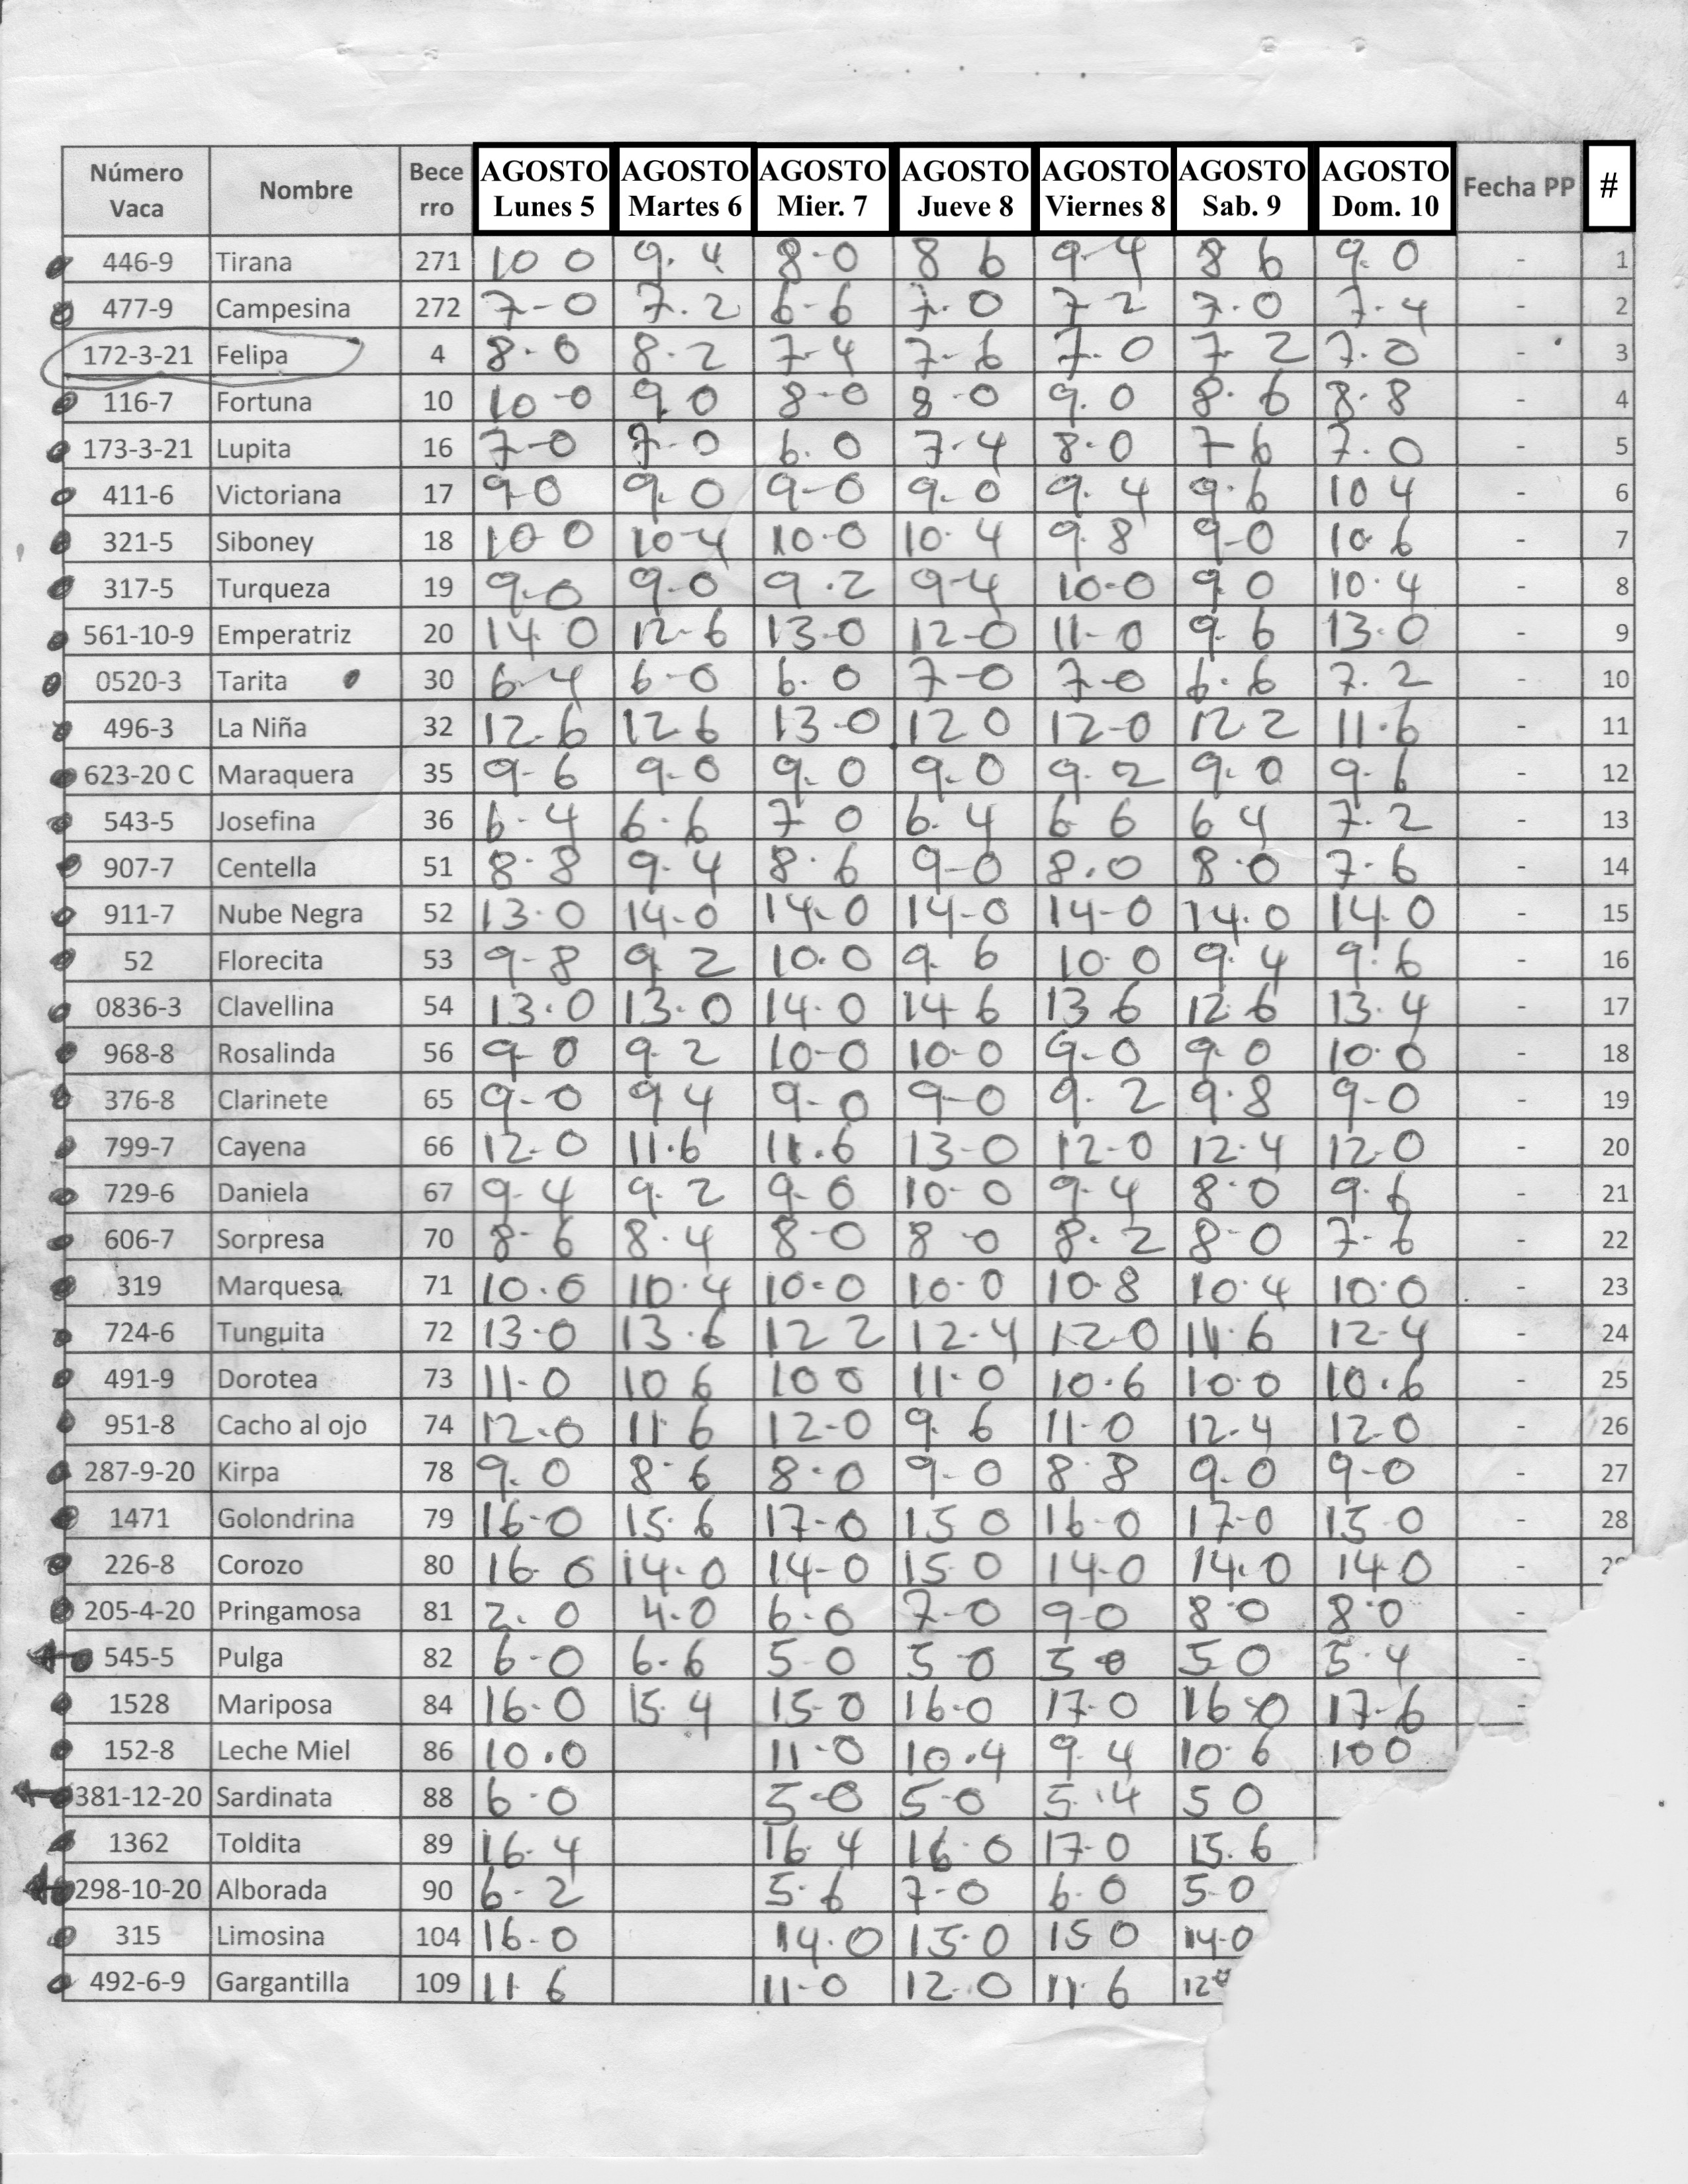 Número Vaca Nombre Becerro AGOSTO Lunes 5 AGOSTO Martes 6 AGOSTO Mier. 7 AGOSTO Jueve 8 AGOSTO Viernes 8 AGOSTO Sab. 9 AGOSTO Dom. 10 Fecha PP #
446-9 Tirana 271 10 0 9. 4 8-0 8 6 9-4 8 6 9. 0 - 1
477-9 Campesina 272 7-0 7.2 6-6 7.0 7 2 7.0 7.4 - 2
172-3-21 Felipa 4 8-0 8.2 7-4 7-6 7.0 7.2 7.0 - 3
116-7 Fortuna 10 10-0 9.0 8-0 8-0 9.0 8.6 8.8 - 4
173-3-21 Lupita 16 7-0 7-0 6.0 7.4 8.0 7-6 7.0 - 5
411-6 Victoriana 17 9-0 9.0 9-0 9.0 9.4 9.6 10 4 - 6
321-5 Siboney 18 10-0 10-4 10.0 10.4 9.8 9-0 10.6 - 7
317-5 Turqueza 19 9-0 9.0 9.2 9-4 10-0 9.0 10.4 - 8
561-10-9 Emperatriz 20 14.0 12-6 13.0 12-0 11-0 9.6 13.0 - 9
0520-3 Tarita 30 6.4 6-0 6.0 7-0 7-0 6.6 7.2 - 10
496-3 La Niña 32 12.6 12 6 13-0 12 0 12-0 12.2 11.6 - 11
623-20 C Maraquera 35 9-6 9-0 9.0 9.0 9.2 9.0 9.6 - 12
543-5 Josefina 36 6-4 6.6 7 0 6.4 6 6 6 4 7.2 - 13
907-7 Centella 51 8.8 9.4 8.6 9-0 8.0 8.0 7.6 - 14
911-7 Nube Negra 52 13.0 14-0 14-0 14-0 14-0 14.0 14.0 - 15
52 Florecita 53 9-8 9.2 10.0 9. 6 10.0 9.4 9.6 - 16
0836-3 Clavellina 54 13.0 13.0 14.0 14 6 13 6 12.6 13.4 - 17
968-8 Rosalinda 56 9-0 9.2 10-0 10-0 9-0 9.0 10.0 - 18
376-8 Clarinete 65 9-0 9 4 9-0 9-0 9.2 9.8 9-0 - 19
799-7 Cayena 66 12.0 11.6 11.6 13-0 12-0 12.4 12.0 - 20
729-6 Daniela 67 9-4 9.2 9-0 10-0 9-4 8.0 9.6 - 21
606-7 Sorpresa 70 8-6 8.4 8-0 8-0 8.2 8-0 7-6 - 22
319 Marquesa 71 10.0 10.4 10-0 10-0 10.8 10.4 10.0 - 23
724-6 Tunguita 72 13.0 13.6 12 2 12.4 12.0 11.6 12-4 - 24
491-9 Dorotea 73 11-0 10 6 10 0 11.0 10.6 10.0 10.6 - 25
951-8 Cacho al ojo 74 12.0 11 6 12-0 9. 6 11-0 12.4 12.0 - 26
287-9-20 Kirpa 78 9.0 8.6 8.0 9-0 8.8 9.0 9-0 - 27
1471 Golondrina 79 16-0 15.6 17-0 15 0 16-0 17-0 15.0 - 28
226-8 Corozo 80 16.0 14.0 14-0 15.0 14-0 14.0 14.0 -
205-4-20 Pringamosa 81 2.0 4.0 6.0 7-0 9-0 8.0 8.0 -
545-5 Pulga 82 6-0 6-6 5-0 5 0 5 0 5 0 5.4 -
1528 Mariposa 84 16.0 15.4 15-0 16-0 17.0 16.0 17-6 -
152-8 Leche Miel 86 10.0 11-0 10.4 9. 4 10.6 10 0
381-12-20 Sardinata 88 6.0 5-0 5-0 5.4 5 0
1362 Toldita 89 16.4 16.4 16.0 17.0 15.6
298-10-20 Alborada 90 6-2 5.6 7-0 6.0 5.0
315 Limosina 104 16-0 14.0 15.0 15 0 14-0
492-6-9 Gargantilla 109 11.6 11-0 12.0 11.6 12